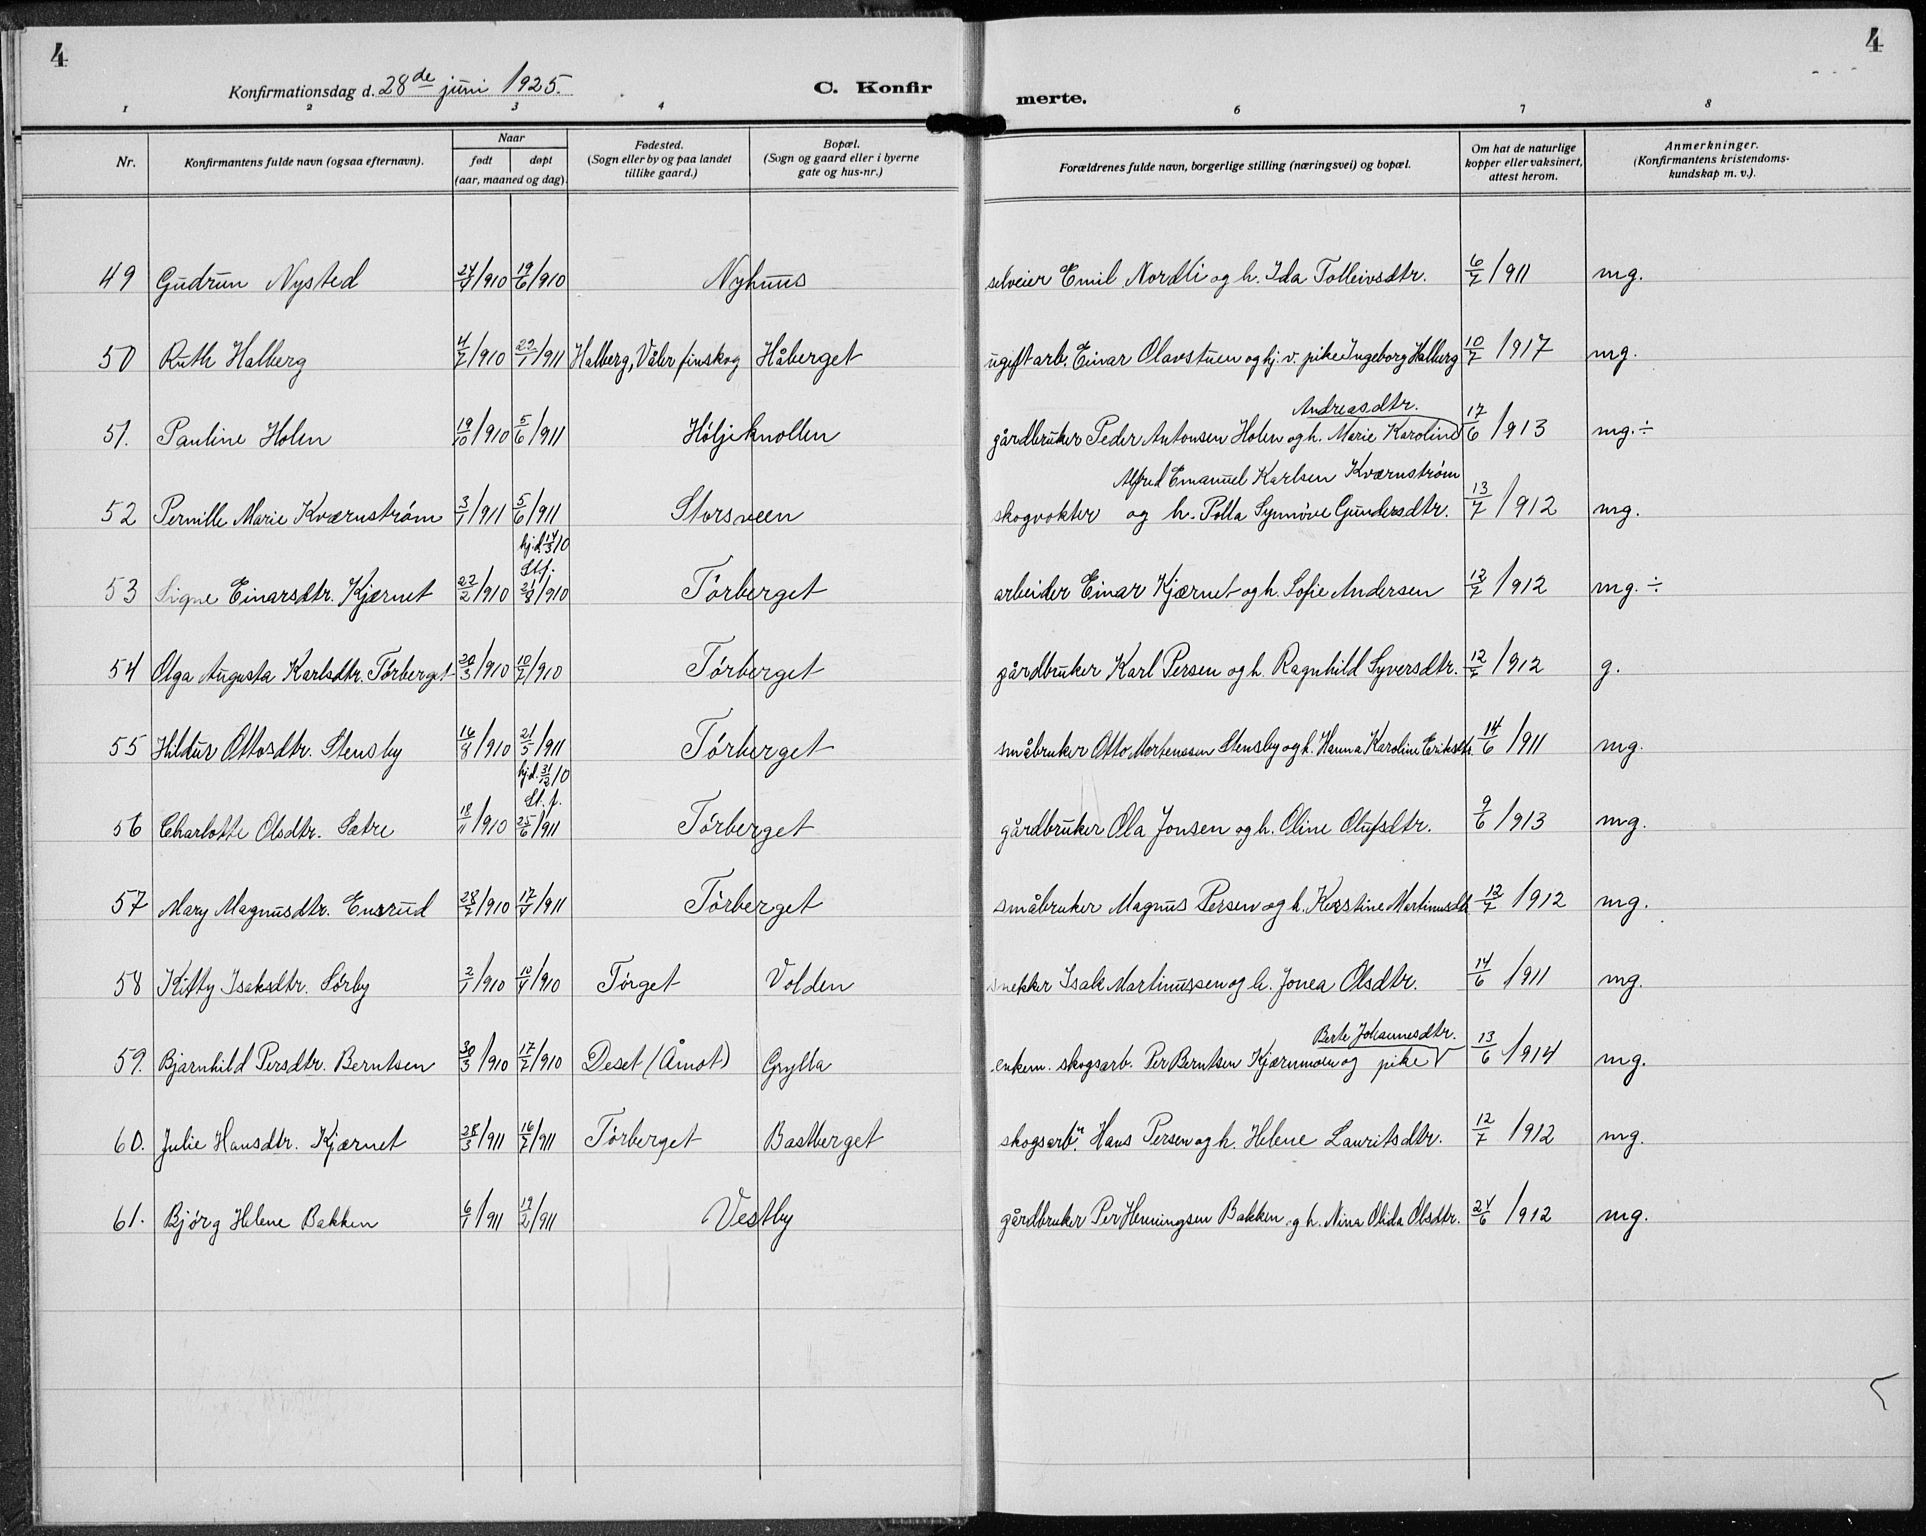 4
4
Konfirmationsdag d. 28de juni 1925.
C. Konfir
merte.
1 2 3 4 6 7 8
Nr.
Konfirmantens fulde navn (ogsaa efternavn).
Naar
født døpt
(aar, maaned og dag).
Fødested.
(Sogn eller by og paa landet
tillike gaard.)
Bopæl.
(Sogn og gaard eller i byerne
gate og hus-nr.)
Forældrenes fulde navn, borgerlige stilling (næringsvei) og bopæl.
Om hat de naturlige
kopper eller vaksinert,
attest herom.
Anmerkninger.
(Konfirmantens kristendoms-
kundskap m. v.).
49 Gudrun Nysted 24/4/910 19/6/910 Nyhuus selveier Emil Nordli og h. Ida Tolleivsdtr. 6/7/911 mg.
50 Ruth Halberg 4/7/910 22/1/911 Halberg, Våler finskog Håberget ugift arb. Einar Olavstuen og hj. v. pike Ingeborg Halberg 10/7/917 mg.
Andreasdtr.
51. Pauline Holen 19/10/910 5/6/911 Høljeknollen gårdbruker Peder Antonsen Holen og h. Marie Karoline 17/6/913 mg. ÷
Alfred Emanuel Karlsen Kværnstrøm
52 Pernille Marie Kværnstrøm 3/1/911 5/6/911 Storsveen skogvokter og h. Polla Synnøve Gundersdtr. 13/7/912 mg.
hj.d. 14/3/10
St.f.
53 Signe Einarsdtr. Kjærnet 22/2/910 21/8/910 Tørberget arbeider Einar Kjærnet og h. Sofie Andersen 12/7/912 mg. ÷
54 Olga Augusta Karlsdtr. Tørberget 20/3/910 10/7/910 Tørberget gårdbruker Karl Persen og h. Ragnhild Syversdtr. 12/7/912 g.
55 Hildur Ottosdtr. Stensby 16/8/910 21/5/911 Tørberget småbruker Otto Mortenssen Stensby og h. Hanna Karoline Eriksdtr. 14/6/911 mg.
hj.d. 31/12/10
St. f.
56 Charlotte Olsdtr. Sætre 18/11/910 25/6/911 Tørberget gårdbruker Ola Jonsen og h. Oline Olufsdtr. 9/6/913 mg.
57 Mary Magnusdtr. Ensrud 28/7/910 17/4/911 Tørberget småbruker Magnus Persen og h. Kerstine Martinusdtr 12/7/912 mg.
58 Kitty Isaksdtr. Sørby 2/1/910 10/4/910 Tørget Volden snekker Isak Martinussen og h. Jonea Olsdtr. 14/6/911 mg.
Berte Johannesdtr.
59. Bjarnhild Persdtr. Berntsen 30/3/910 17/7/910 Deset (Åmot) Grylla enkem. skogsarb. Per Berntsen Kjærnmoen og pike V 13/6/914 mg.
60. Julie Hansdtr. Kjærnet 28/3/911 16/7/911 Tørberget Bastberget skogsarb. Hans Persen og h. Helene Lauritsdtr. 12/7/912 mg.
61. Bjørg Helene Bakken 6/1/911 19/2/911 Vestby gårdbruker Per Henningsen Bakken og h. Nina Olida Olsdtr. 24/6/912 mg.